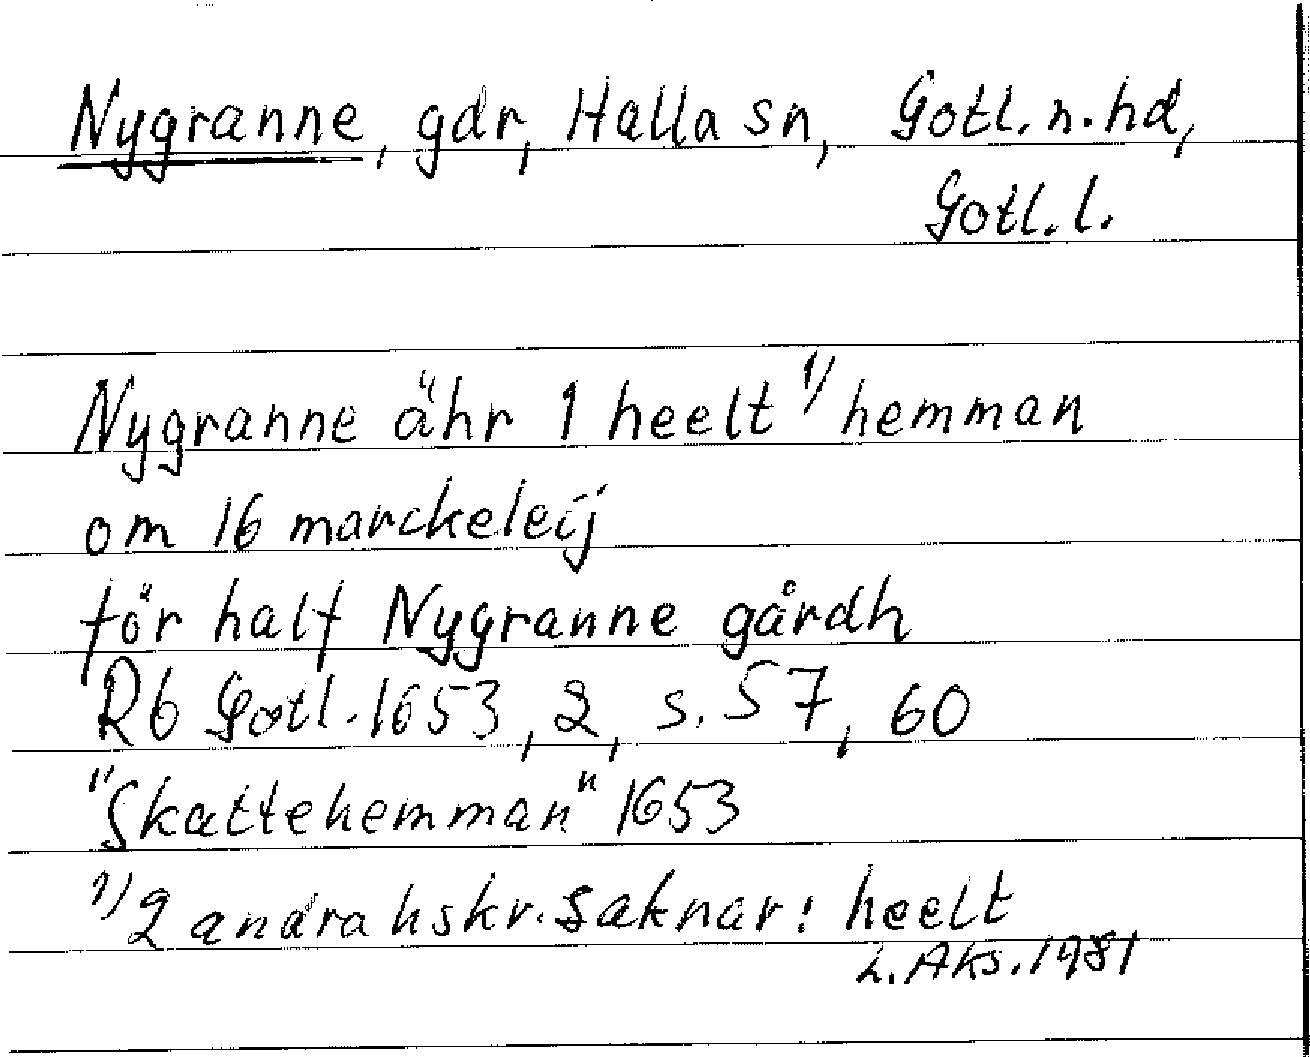 Nygranne, gdr, Halla sn, Gotl. n. hd,
Gotl. l.
Nygranne ähr 1 heelt 1) hemman
om 16 marckeleij
för half Nygranne gårdh
Rb Gotl. 1653, 2, s. 57, 60
"Skattehemman" 1653
1) 2 andra hskr. saknar: heelt
L. Aks. 1981